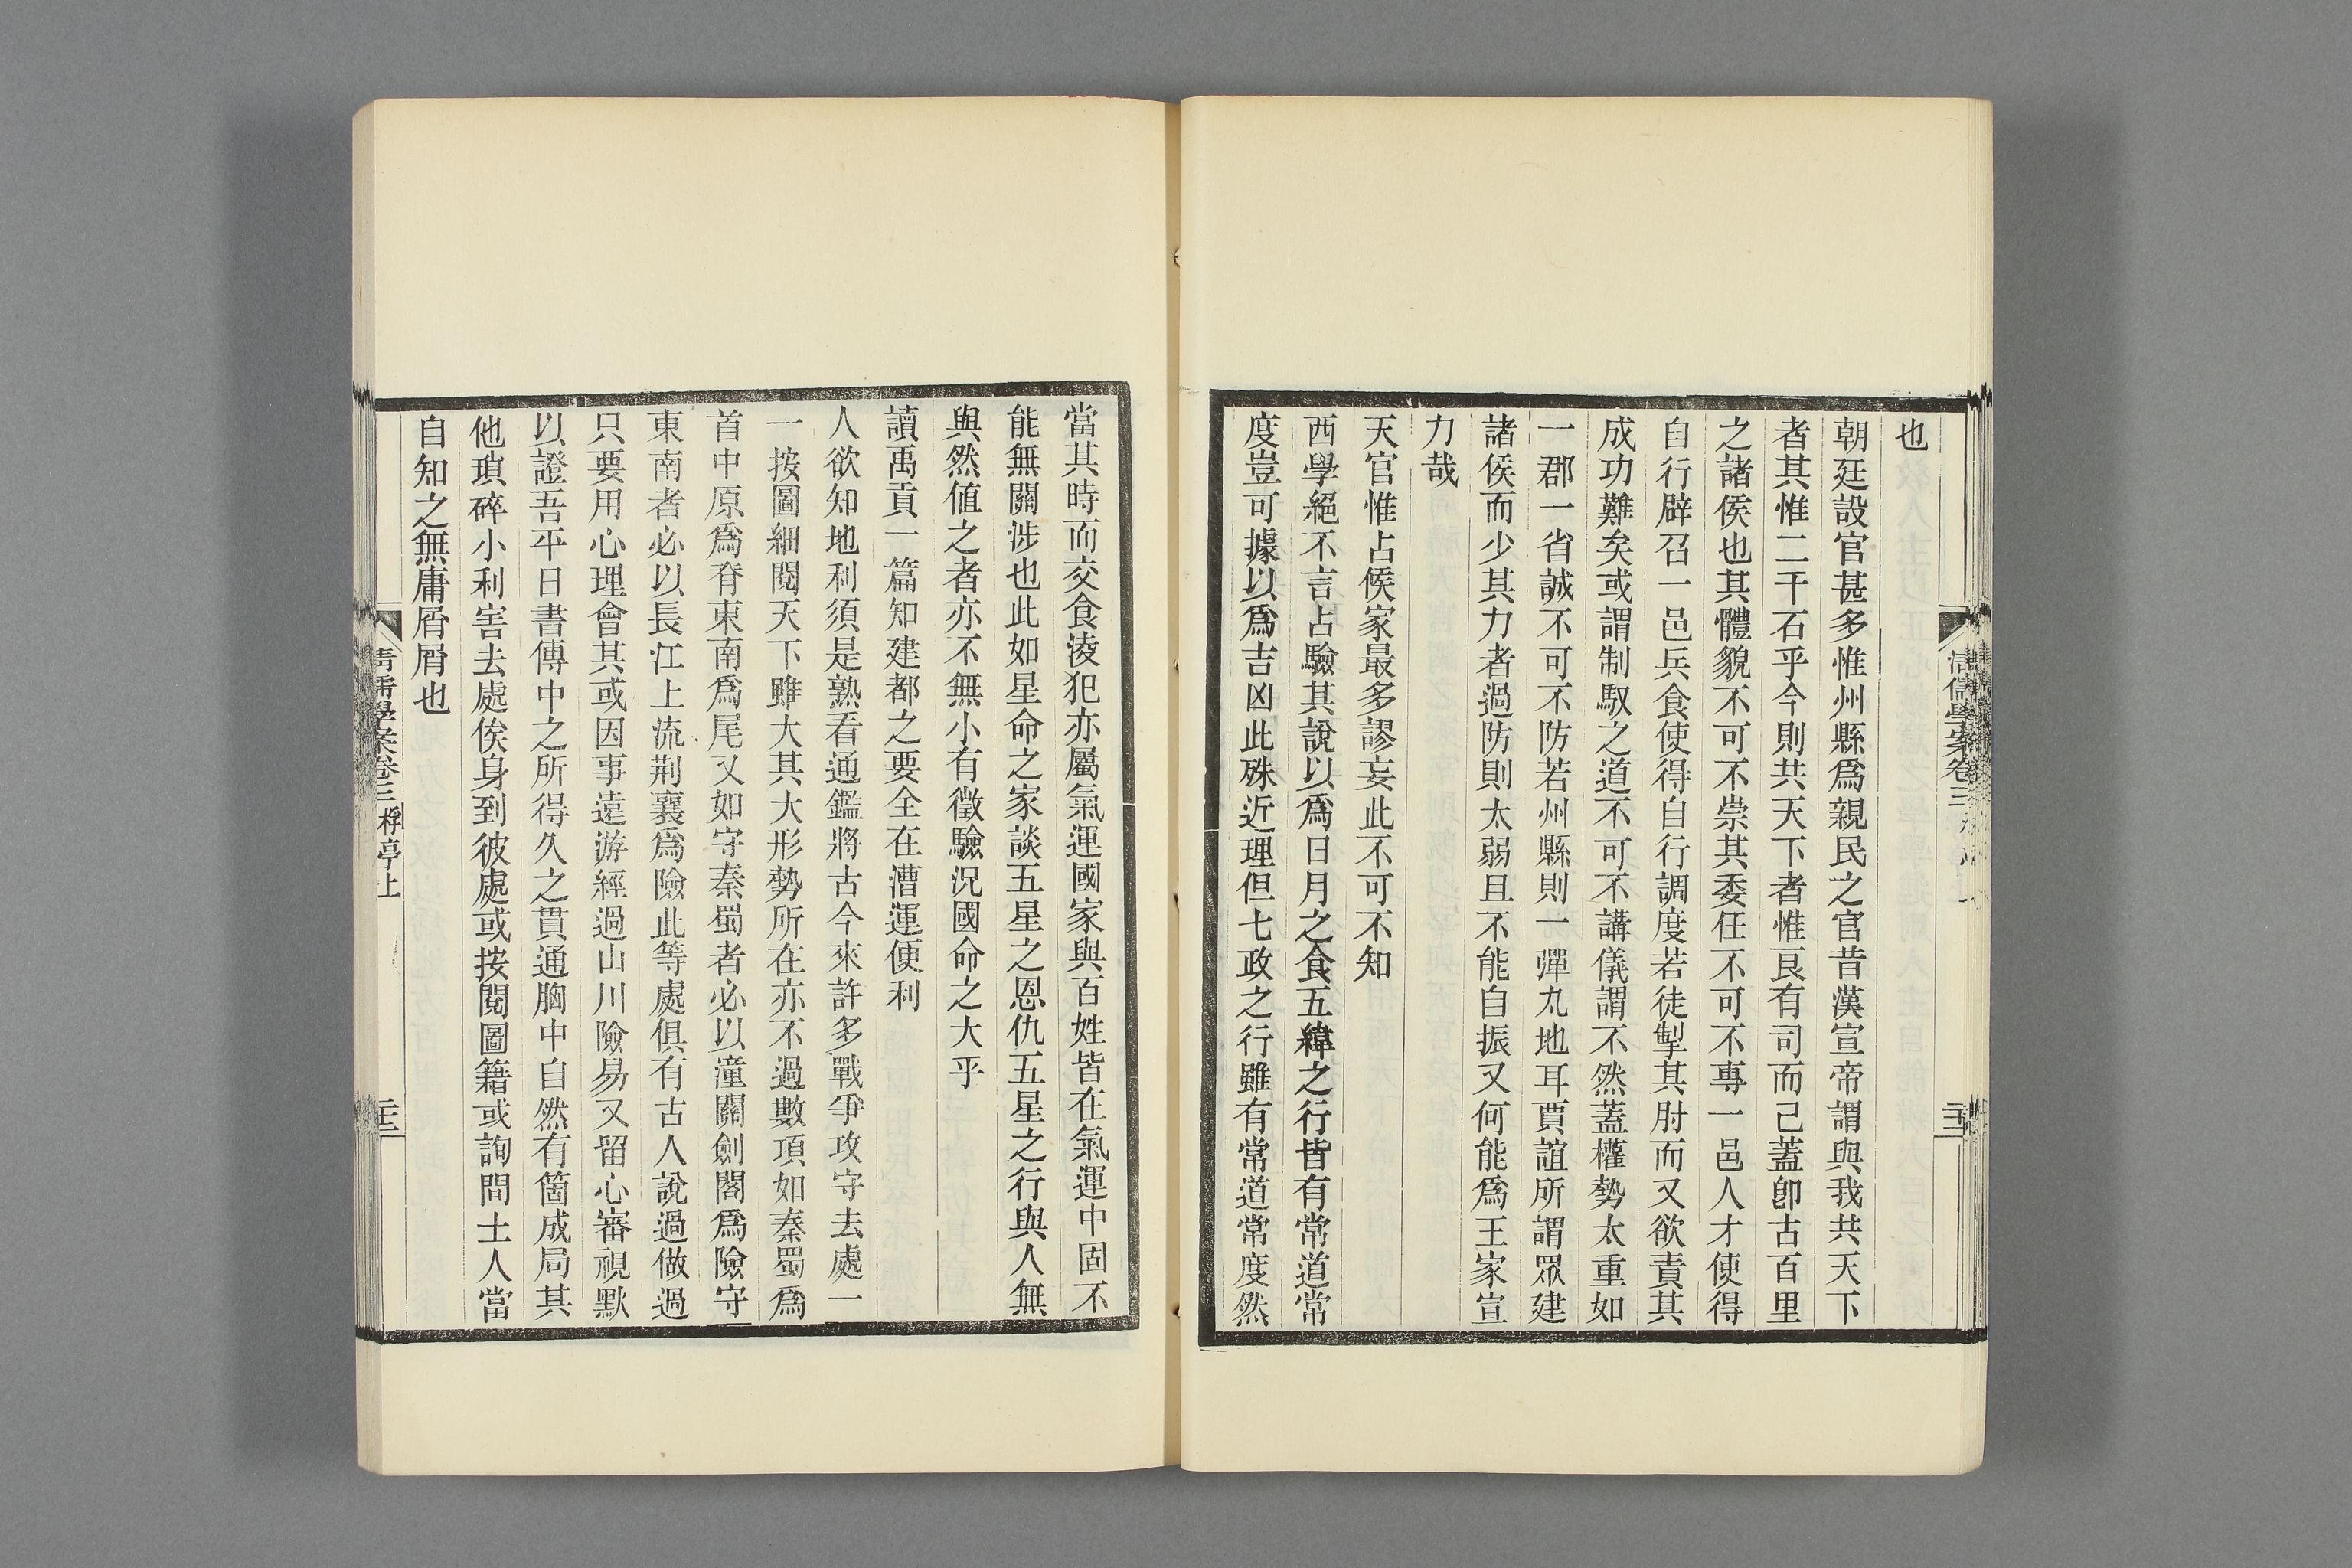 也
朝廷設官甚多惟州縣爲親民之官昔漢宣帝謂與我共天下
者其惟二千石乎今則共天下者惟艮有司而己蓋卽古百里
之諸侯也其體貌不可不崇其委任不可不專一邑人才使得
自行辟召一邑兵食使得自行調度若徒掣其肘而又欲責其
成功難矣或謂制馭之道不可不講儀謂不然蓋權勢太重如
一郡一省誠不可不防若州縣則一彈丸地耳賈誼所謂眾建
諸侯而少其力者過防則太弱且不能自振又何能爲王家宣
力哉
天官惟占候家最多謬妄此不可不知
西學絕不言占驗其說以爲日月之食五緯之行皆有常道常
度豈可據以爲吉凶此殊近理但七政之行雖有常道常度然
當其時而交食淩犯亦屬氣運國家與百姓皆在氣運中固不
能無關涉也此如星命之家談五星之恩仇五星之行與人無
與然値之者亦不無小有徵驗況國命之大乎
讀禹貢一篇知建都之要全在漕運便利
人欲知地利須是熟看通鑑將古今來許多戰爭攻守去處一
一按圖細閱天下雖大其大形勢所在亦不過數項如秦蜀爲
首中原爲脊東南爲尾又如守秦蜀者必以潼關劍閣爲險守
東南者必以長江上流荆襄爲險此等處俱有古人說過做過
只要用心理會其或因事遠游經過山川險易又留心審視默
以證吾平日書傳中之所得久之貫通胸中自然有箇成局其
他瑣碎小利害去處俟身到彼處或按閱圖籍或詢問土人當
自知之無庸屑屑也
清儒學案卷三 桴亭上